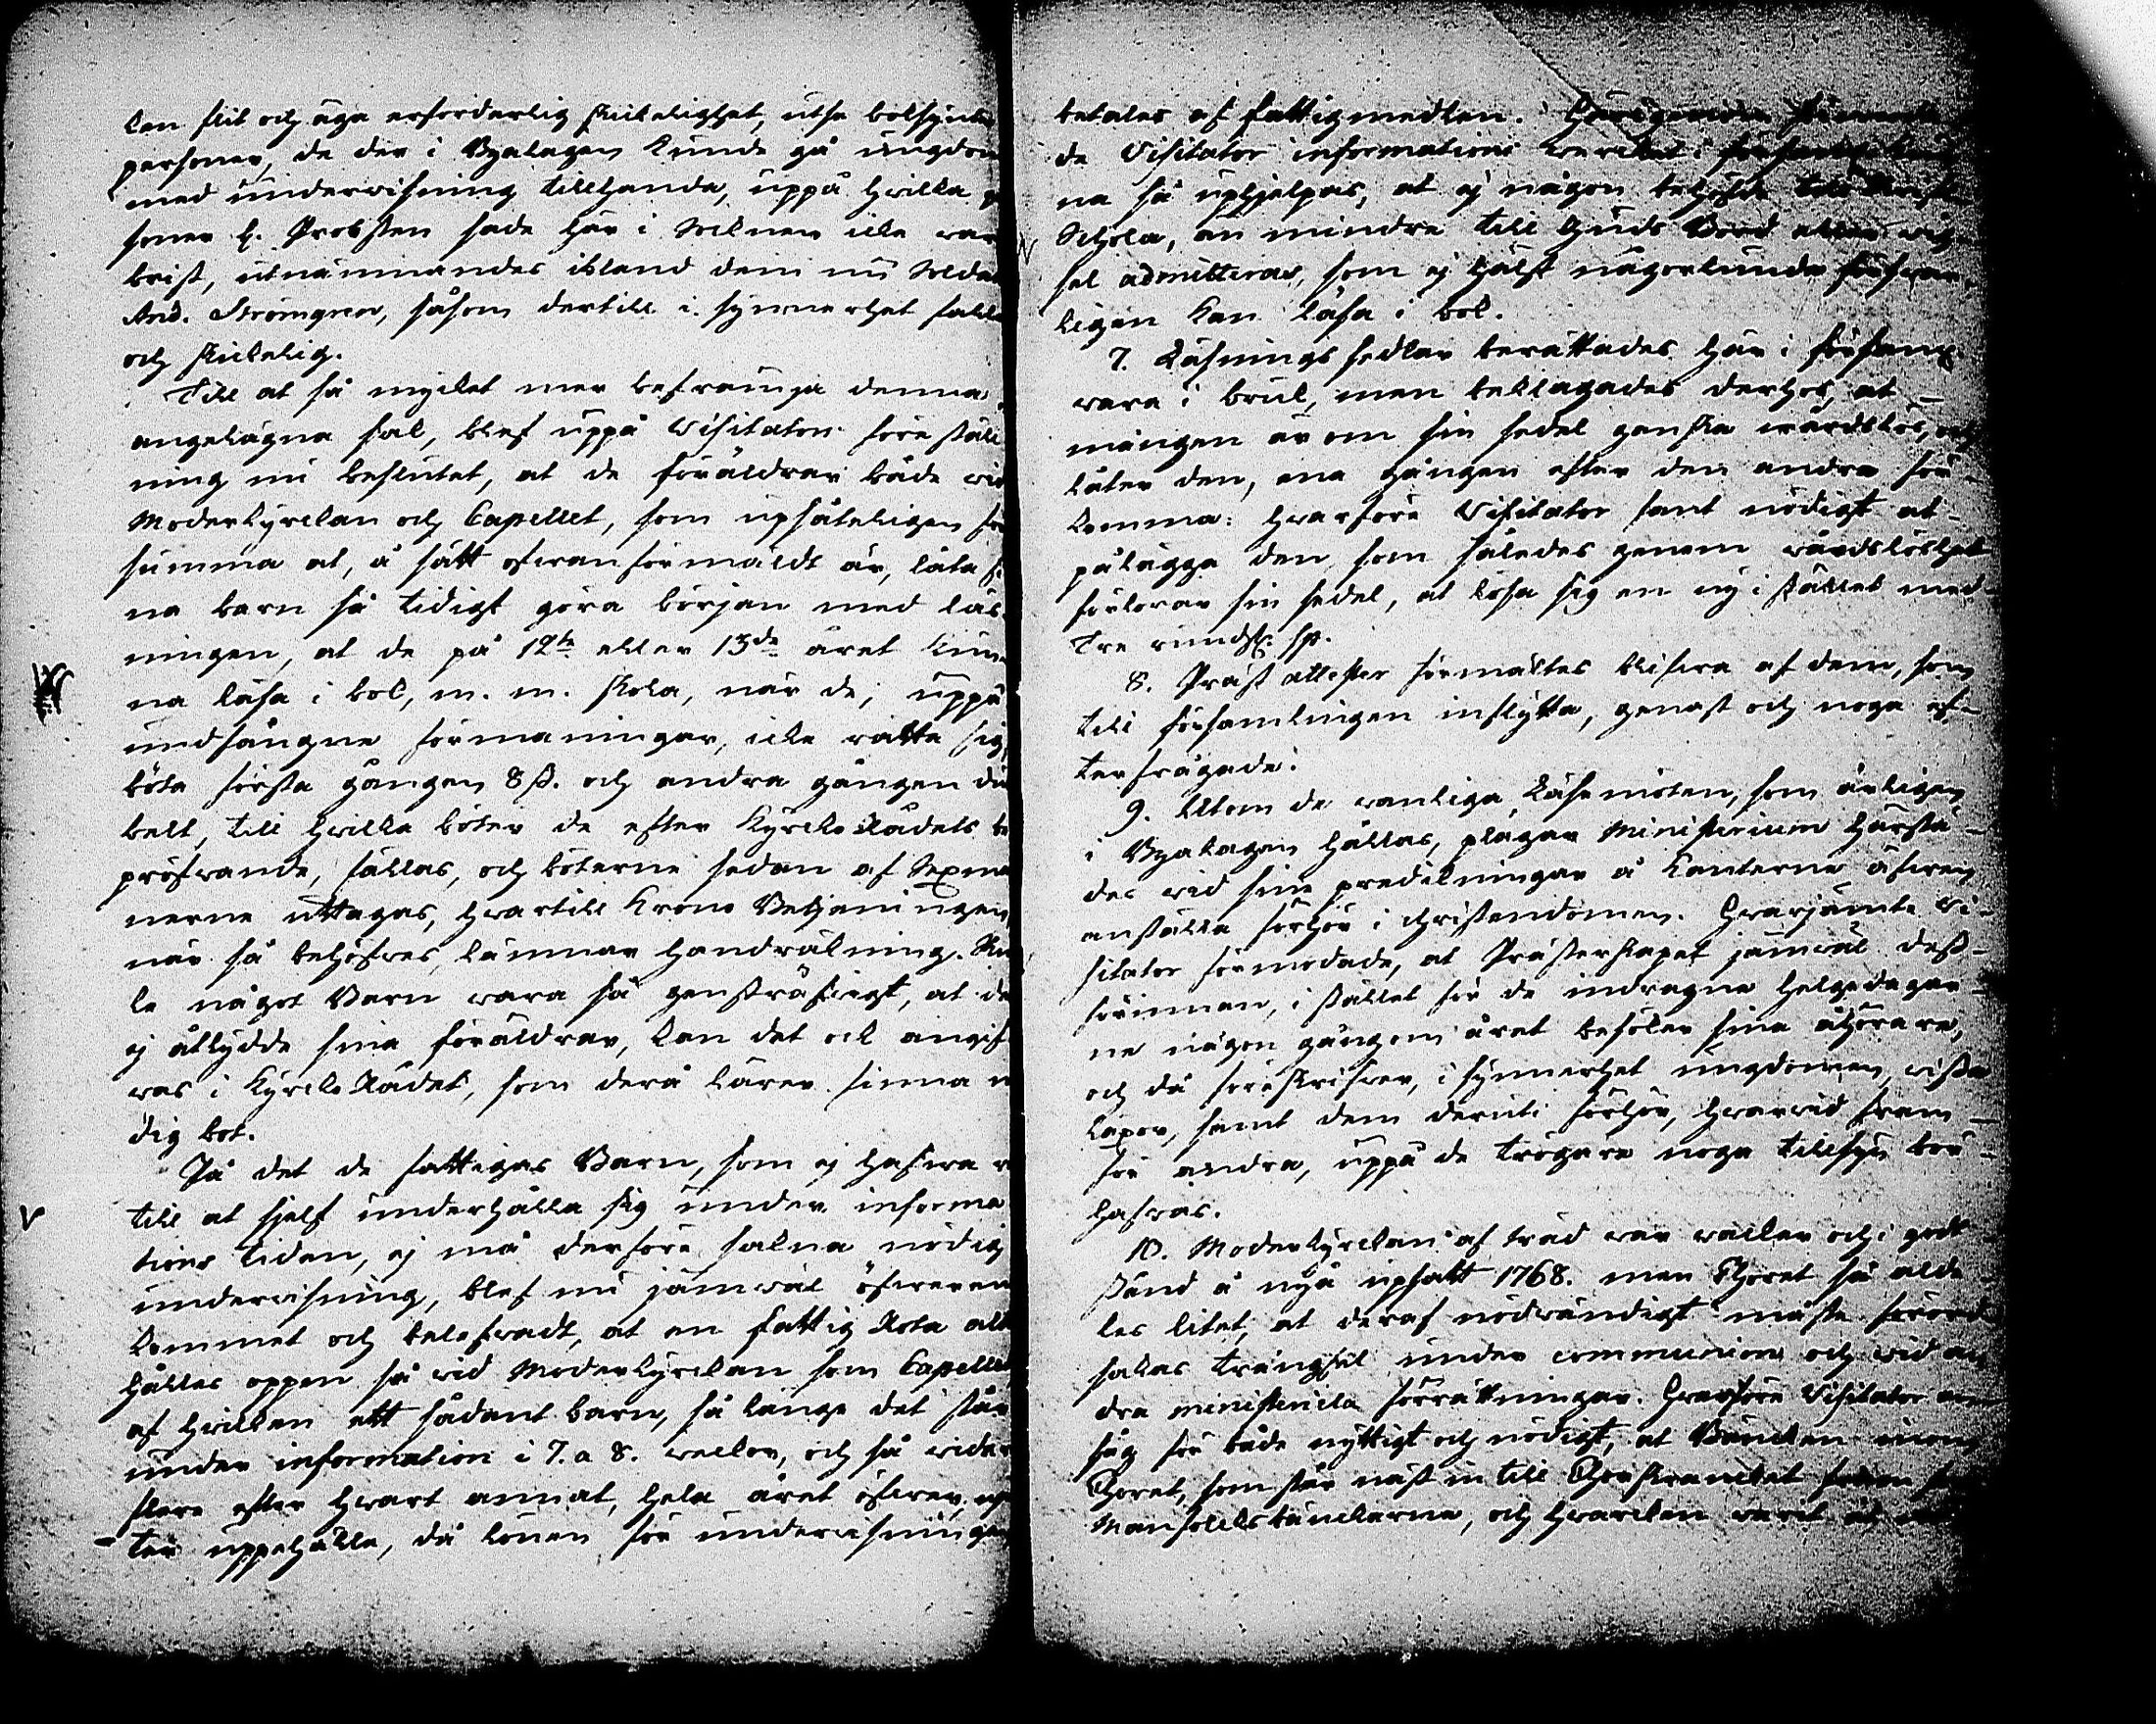 kan flit och äga erforderlig skickelighet, utse bokkynte
personer, de der i Byalagen kunde gå ungdom
med underwisning tillhanda, uppå hwilka
soner h. Probsten sade här i Soknen icke wara
brist, utnämnandes ibland dem nu Soldat
And. Strömgren, såsom dertill i synnerhet
och skickelig.
Till at så mycket mer befrämja denna
angelägna sak, blef uppå Visitators föreställ-
ning nu beslutet, at de föräldrar både wid
Moderkyrckan och Capellet, som upsåteligen för
summa at, å sätt ofwanförmäldt är, låta si
na barn så tidigt göra början med läs-
ningen, at de på 12te eller 13de året kun-
na läsa i bok, m. m. skola, när de, uppå
undfångne förmaningar, icke rätta sig,
böta första gången 8 ß. och andra gången du
belt, till hwilka böter de efter KyrckoRådets be
pröfwande, fällas, och böterne sedan af Sexmä
nerne uttagas, hwartill Krono Betjeningen,
när så behöfwes, lämnar handräkning. Skul
le något Barn wara så gensträfwigt, at de
ej åtlydde sina föräldrar, kan det ock angif
was i KyrckoRådet, som derå lärer finna n
dig bot.
På det de fattigas Barn, som ej hafwa r
till at sjelf underhålla sig under informa
tions tiden, ej må derföre sakna nödig
underwisning, blef nu jämwäl öfwerens
kommet och belefwadt, at en fattig Rota allt
hålles oppen så wid Moderkyrckan som Capellet
af hwilken ett sådant barn, så länge det står
under information i 7. a 8. weckor, och så widare
flere efter hwart annat, hela året öfwer,
ter uppehälle, då lönen för underwisningen
betales af fattigmedlen.
de Visitator informations wercket i
na så uphjelpas, at ej någon
Schola, än mindre till Guds Bord eller wig-
sel admitteras, som ej hälst någorlunda förswar-
ligen kan läsa i bok.
7. Läsnings sedlar berättades här i förs
wara i bruk, men beklagades derhos, at
mången är om sin sedel ganska wårdslös, och
låter den, ena gången efter den andra för-
komma: hwarföre Visitator fant nödigt at
pålägga den, som således genom wårdslöshet
förlorar sin sedel, at lösa sig en ny i stället med
Tre rundst. sp.
8. Präst attester förmältes blifwa af dem, som
till församlingen inflytta, genast och noga ef-
terfrågade.
9. Utom de wanliga Läsemöten, som årligen
i Byalagen hållas, plägar Ministerium härstä-
des wid sine predikningar å Kanterne äfwen
anställa förhör i christendomen. Hwarjämte Vi-
sitator förmodade, at Prästerskapet jämwäl dess-
förinnan, i stället för de indragne Helgedagar-
ne någon gång om året besöker sina åhörare,
och då föreskrifwer, i synnerhet ungdomen wissa
läxor, samt dem deruti förhör, hwarwid fram-
för andra, uppå de trögare noga tillsyn bör
hafwas.
10. Moderkyrckan af träd war wacker och i godt
stånd å nyå upsatt 1768. men Choret så alde
les litet, at deraf nödwändigt måste förord
sakas trängsel under communion och wid an
dra ministeriela förrättningar. Hwarföre Visitator an
såg för både nyttigt och nödigt, at Bäncken inom
Choret, som står näst in till Chorskrancket
Manfolcksbänckarne, och hwarcken warit